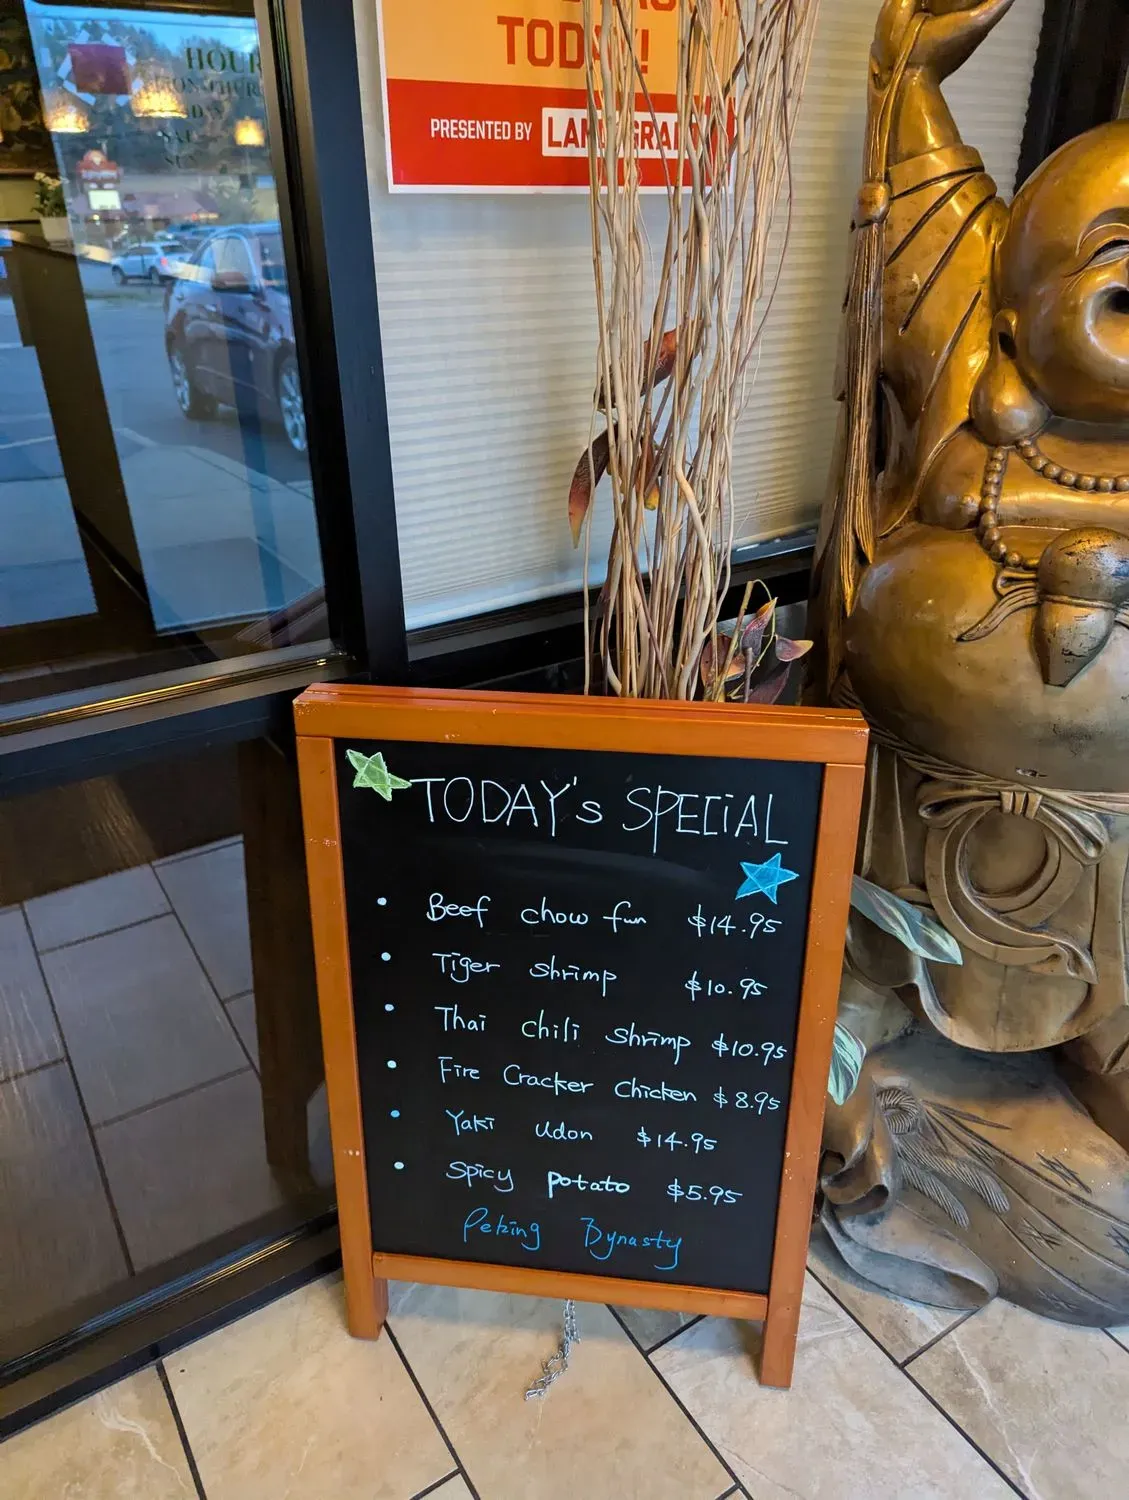 TODAY!
PRESENTED BY
HOUR
TODAY's SPECiAL
• Beef chow fun $14.95
• Tiger shrimp $10.95
• Thai chili shrimp $10.95
• Fire Cracker Chicken $8.95
• Yaki udon $14.95
• Spicy potato $5.95
Peking Dynasty